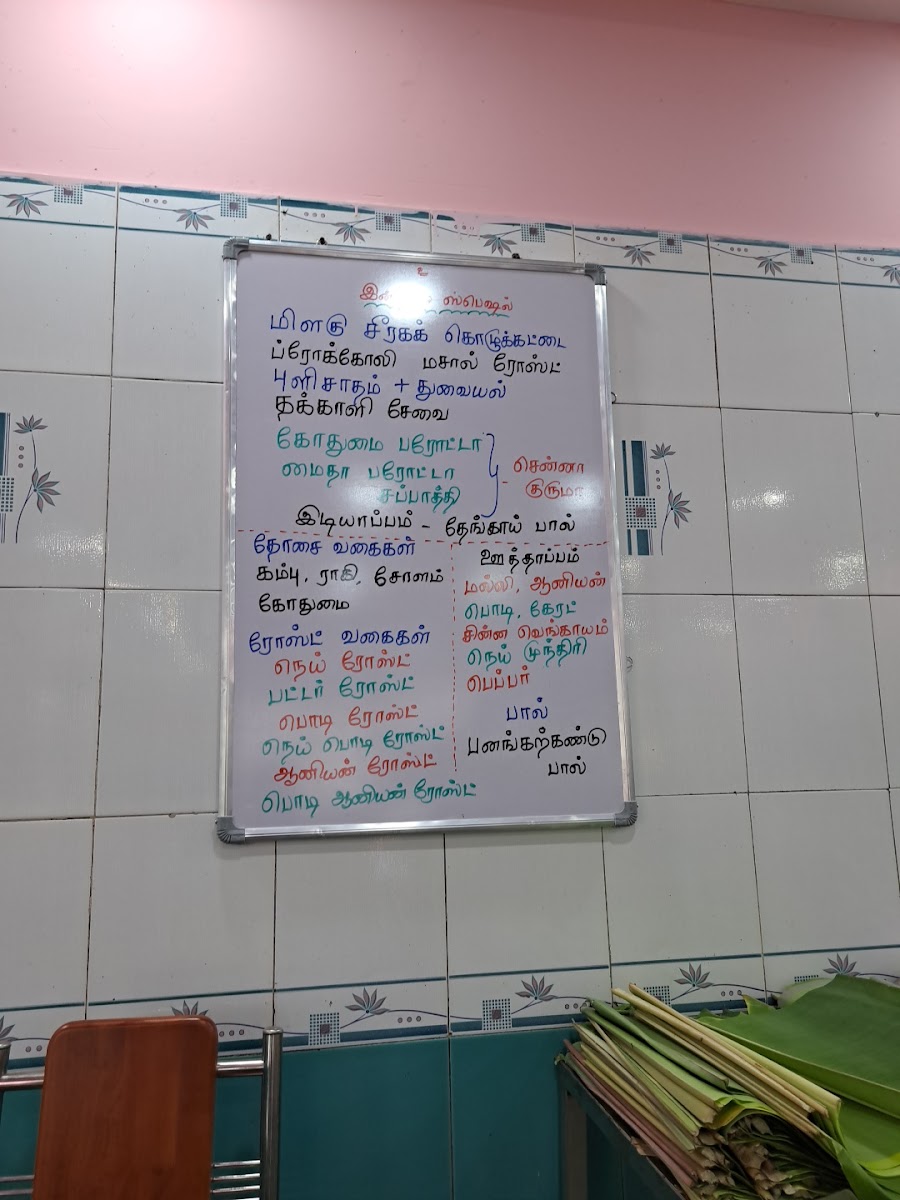 உ
ஸ்பெஷல்
மிளகு சீரகக் கொழுக்கட்டை
ப்ரோக்கோலி மசால் ரோஸ்ட்
புளிசாதம் + துவையல்
தக்காளி சேவை
கோதுமை பரோட்டா
மைதா பரோட்டா
சப்பாத்தி
- சென்னா
குருமா
இடியாப்பம் - தேங்காய் பால்
தோசை வகைகள்
கம்பு, ராகி, சோளம்
கோதுமை
ரோஸ்ட் வகைகள்
நெய் ரோஸ்ட்
பட்டர் ரோஸ்ட்
பொடி ரோஸ்ட்
நெய் பொடி ரோஸ்ட்
ஆனியன் ரோஸ்ட்
பொடி ஆனியன் ரோஸ்ட்
ஊத்தாப்பம்
மல்லி, ஆனியன்
பொடி, கேரட்
சின்ன வெங்காயம்
நெய் முந்திரி
பெப்பர்
பால்
பனங்கற்கண்டு
பால்